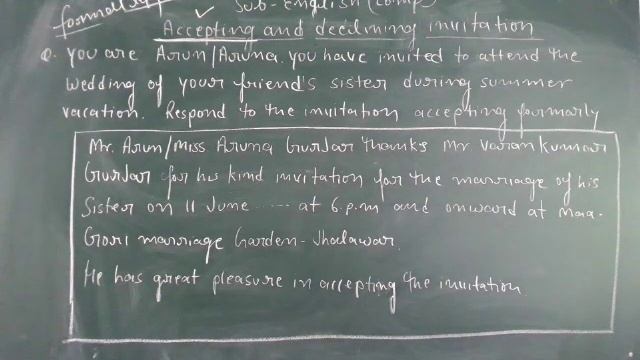 formal ✓ Sub-English (comp)
Accepting and declining invitation
Q. You are Arun/Aruna. you have invited to attend the
wedding of your friend's sister during summer
vacation. Respond to the invitation accepting formarly
Mr. Arun/Miss Aruna Gurjar thanks Mr Varan kumar
Gurjar for his kind invitation for the marriage of his
Sister on 11 June ..... at 6.p.m and onward at Maa-
Gori marriage Garden-Jhalawar.
He has great pleasure in accepting the invitation